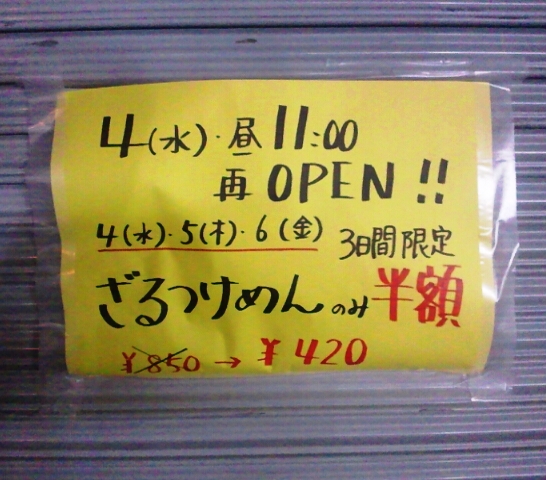 4(水)・昼11:00
再OPEN!!
4(水)・5(木)・6(金) 3日間限定
ざるつけめんのみ半額
¥850→¥420